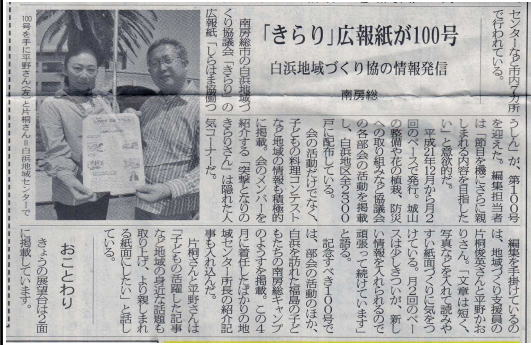 センターなど市内7カ所
で行われている。
「きらり」広報紙が100号
白浜地域づくり協の情報発信
南房総
100号を手に平野さん(左)と片桐さん=白浜地域センターで
南房総市の白浜地域づ
くり協議会「きらり」の
広報紙「しらはま協働つ
うしん」が、第100号
を迎えた。編集担当者
は「節目を機にさらに親
しまれる内容を目指した
い」と意欲的だ。
平成21年12月から月2
回のペースで発行。城山
の整備や花の植栽、防災
への取り組みなど協議会
の各部会の活動を掲載
し、白浜地区全2300
戸に配布している。
会の活動だけでなく、
子どもの料理コンテスト
など地域の情報も積極的
に掲載。会のメンバーを
紹介する「突撃となりの
きらりさん」は隠れた人
気コーナーだ。
編集を手掛けているの
は、地域づくり支援員の
片桐俊英さんと平野かお
りさん。「文章は短く、
写真などを入れて読みや
すい紙面づくりに気をつ
けている。月2回のペー
スは少しきついが、新し
い情報を入れられるので
頑張って続けています」
と語る。
記念すべき100号で
は、部会の活動のほか、
白浜を訪れた福島の子ど
もたちの南房総キャンプ
のようすを掲載。この4
月に着任したばかりの地
域センター所長の紹介記
事も入れ込んだ。
片桐さんと平野さんは
「子どもの活躍した記事
など地域の身近な話題も
取り上げ、より親しまれ
る紙面にしたい」と話し
ている。
おことわり
きょうの展望台は2面
に掲載しています。